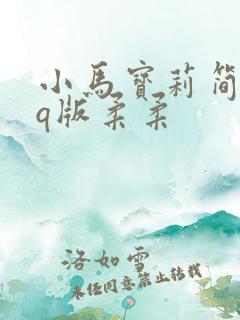 小馬寶莉简
q版柔柔
洛如雪
未经同意禁止转载